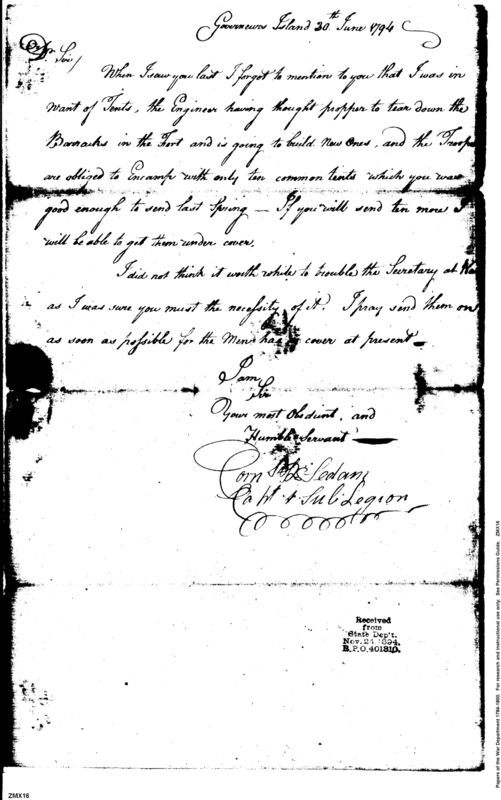 Governeurs Island 30th June 1794
Sir/
When I saw you last I forgot to mention to you that I was in
want of Tents, the Engineer having thought propper to tear down the
Barracks in the Fort and is going to build New Ones, and the Troops
are obliged to Encamp with only ten common tents which you was
good enough to send last Spring — If you will send ten more I
will be able to get them under cover.
I did not think it worth while to trouble the Secretary at War
as I was sure you must the necessity of it. I pray send them on
as soon as possible for the Men has cover at present —
I am
Sir
Your most Obedient, and
Humble Servant
Corns. Sedam
Capt. 4 Sub Legion
Received
from
State Dep't.
Nov. 24. 1894.
R.P.O. 401810.
Papers of the War Department 1784-1800. For research and instructional use only. See Permissions Guide. ZMX16
ZMX16